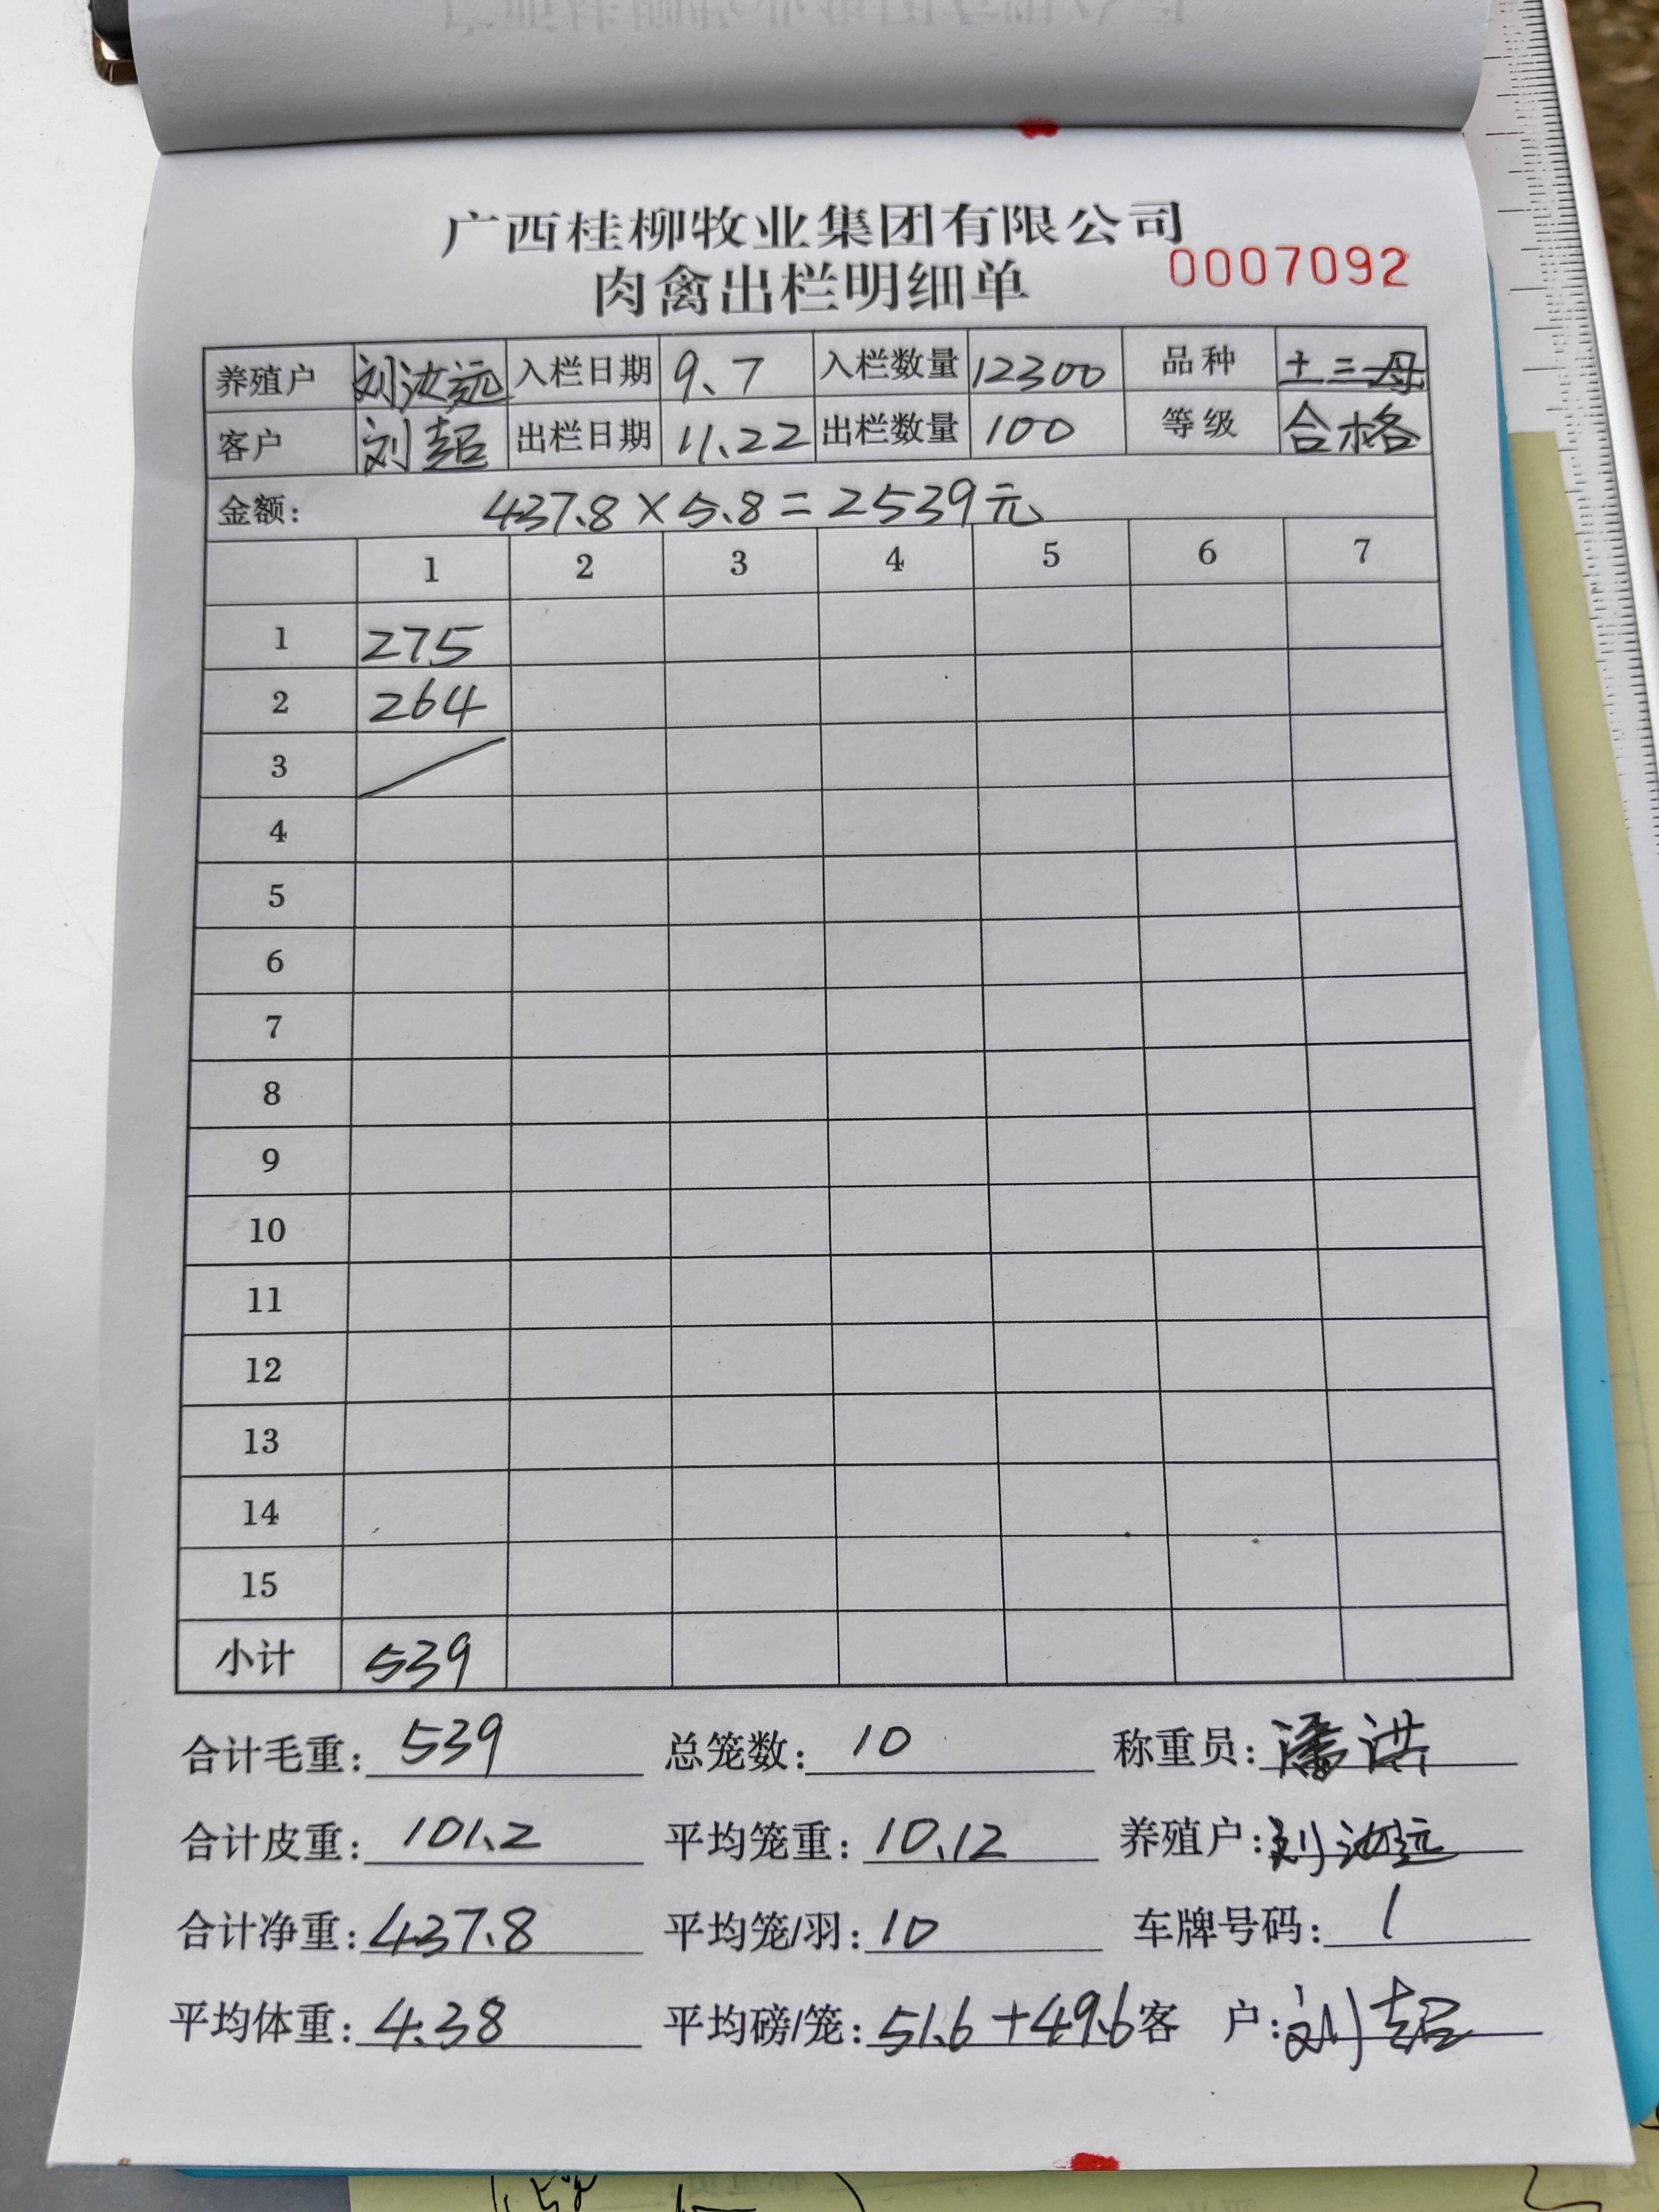 广西桂柳牧业集团有限公司
肉禽出栏明细单 0007092
养殖户 刘汝远 入栏日期 9.7 入栏数量 12300 品种 土三母
客户 刘超 出栏日期 11.22 出栏数量 100 等级 合格
金额: 437.8×5.8=2539元
1 2 3 4 5 6 7
1 275
2 264
3 /
4
5
6
7
8
9
10
11
12
13
14
15
小计 539
合计毛重: 539 总笼数: 10 称重员: 潘洪
合计皮重: 101.2 平均笼重: 10.12 养殖户: 刘汝远
合计净重: 437.8 平均笼/羽: 10 车牌号码: /
平均体重: 4.38 平均磅/笼: 51.6+49.6 客 户: 刘超